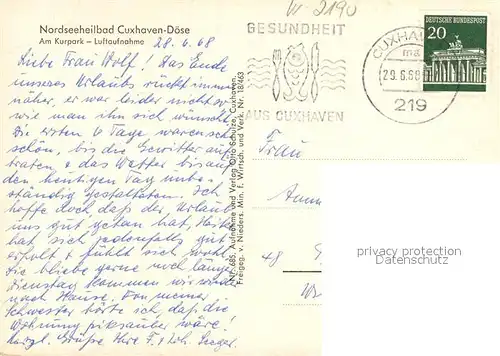 Nordseeheilbad Cuxhaven-Döse
Am Kurpark – Luftaufnahme
28.6.68
Liebe Frau Wolf! Das Ende
unseres Urlaubs rückt immer
näher, er war leider nicht so
wie man ihn sich wünscht.
Die ersten 6 Tage waren
schön, bis die Gewitter auf-
traten & das Wetter bis auf
den heutigen Tag unbe-
ständig gestalteten. Ich
hoffe doch daß der Urlaub
uns gut getan hat,
hat sich jedenfalls gut
erholt & fühlt sich wohl.
Sie bliebe gerne noch länger
Dienstag kommen wir
nach Hause. Von meiner
Schwester hörte ich, daß die
Wohnung piksauber wäre!
Herzl. Grüße Ihre F. &
Nr. 685. Aufnahme und Verlag Otto Schulze, Cuxhaven.
Freigeg. v. Nieders. Min. f. Wirtsch. und Verk. Nr. 18/463
W-2190
GESUNDHEIT
AUS CUXHAVEN
CUXHAVEN
29.6.68
219
DEUTSCHE BUNDESPOST
20
Frau
48
privacy protection
Datenschutz